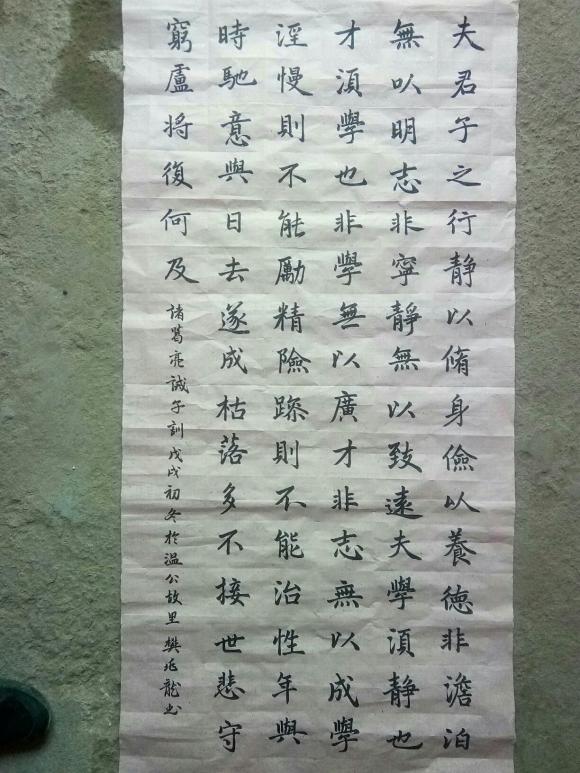 夫君子之行静以脩身儉以養德非澹泊
無以明志非寧静無以致遠夫學湏静也
才湏學也非學無以廣才非志無以成學
淫慢則不能勵精險躁則不能治性年與
時馳意與日去遂成枯落多不接世悲守
窮廬将復何及
諸葛亮誡子訓戊戌初冬於温公故里樊兆龍书